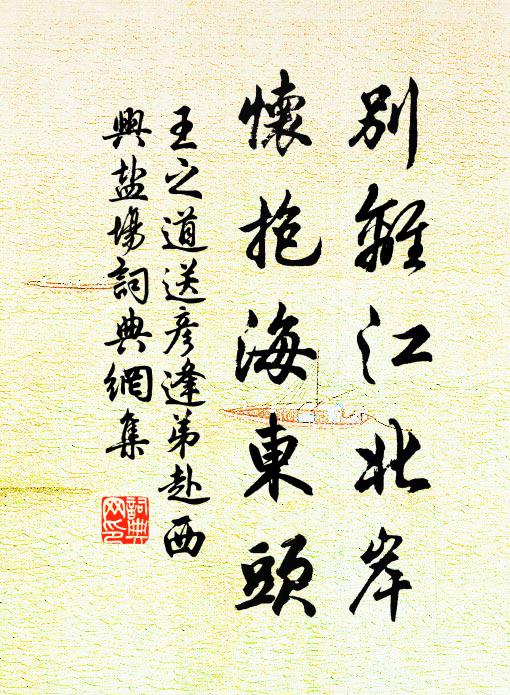 別離江北岸
懷抱海東頭
王之道送彦逢弟赴西
興盐場詞典網集
詞典
网印